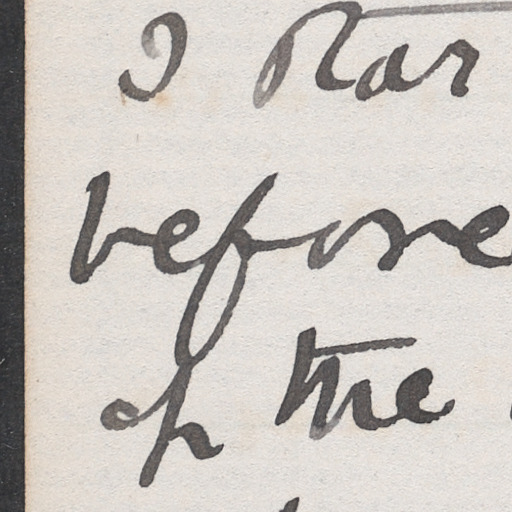 I star
before
of the